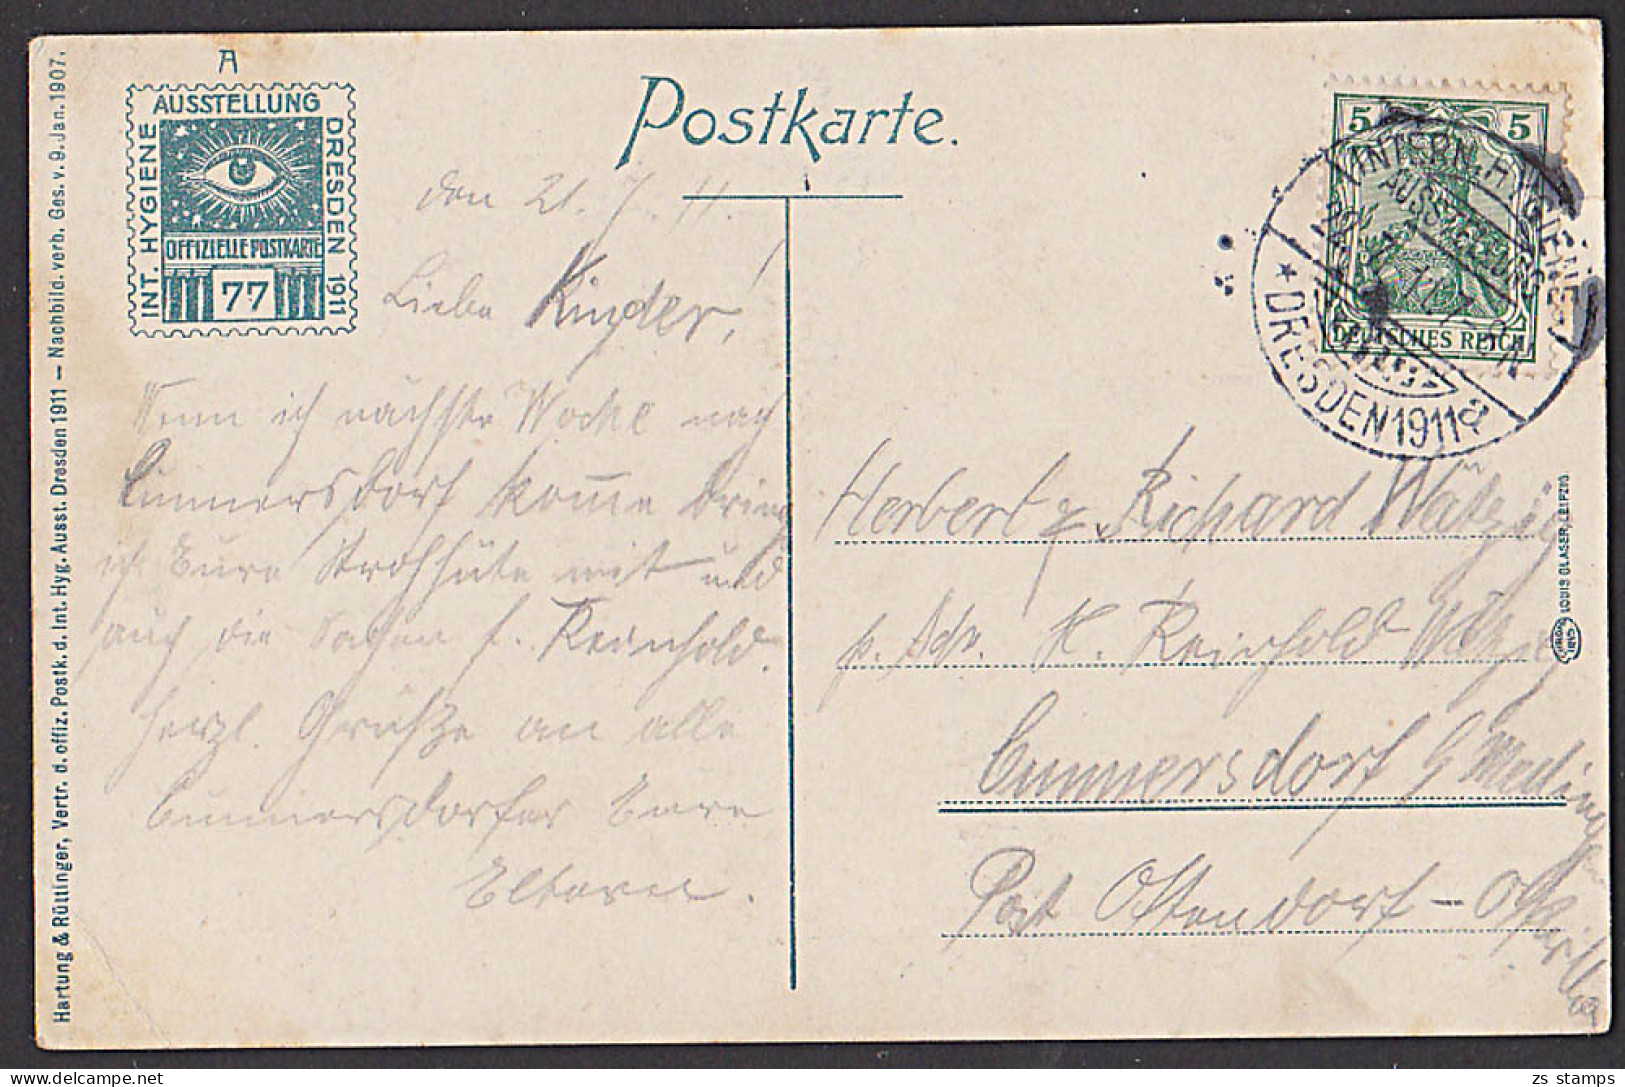 A
INT. HYGIENE
AUSSTELLUNG
DRESDEN 1911
OFFIZIELLE POSTKARTE
77
Hartung & Rüttinger, Vertr. d. offiz. Postk. d. Int. Hyg. Ausst. Dresden 1911 — Nachbild. verb. Ges. v. 9. Jan. 1907.
Postkarte.
den 21. 7. 11.
Liebe Kinder!
Wenn ich nächste Woche nach
Cunnersdorf komme bring
ich Eure Strohhüte mit und
auch die Sachen f. Reinhold.
Herzl. Grüße an alle
Cunnersdorfer Eure
Eltern.
5 5
DEUTSCHES REICH
INTERN. HYGIENE
AUSSTELLUNG
* DRESDEN 1911 a
Herbert u. Richard Wätzig
p. Adr. H. Reinhold
Cunnersdorf b Medingen
Post Ottendorf-Okrilla
LOUIS GLASER, LEIPZIG
zs stamps